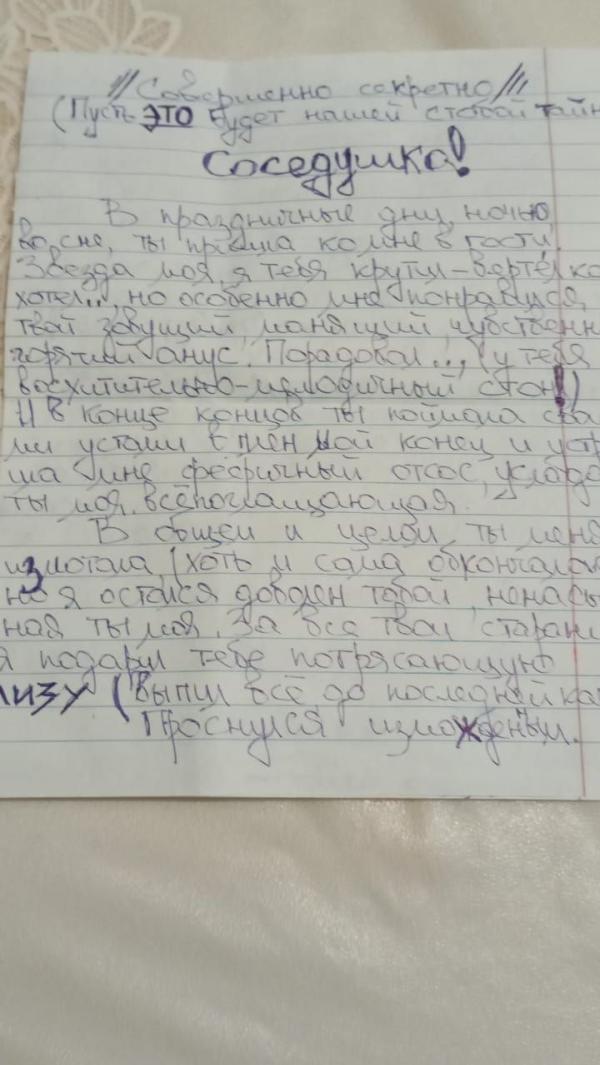 // Совершенно секретно //
(Пусть ЭТО будет нашей с тобой тайн
Соседушка!
В праздничные дни, ночью,
во сне, ты пришла ко мне в гости.
Звезда моя, я тебя крутил-вертел ка
хотел..., но особенно мне понравился,
твой зовущий, манящий, чувственн
горячий анус. Порадовал..., (у тебя
восхитительно-мелодичный стон!)
И в конце концов ты поймала сва
ми устами в плен мой конец и устр
ила мне феричный отсос, услада
ты моя, всёпоглащающая.
В общем и целом, ты меня
измотала, (хоть и сама обкончалас
но я остался доволен тобой, ненасы
ная ты моя. За все твои старани
я подарил тебе потрясающую
лизу (Выпил всё до последней ка
Проснулся измождёным.